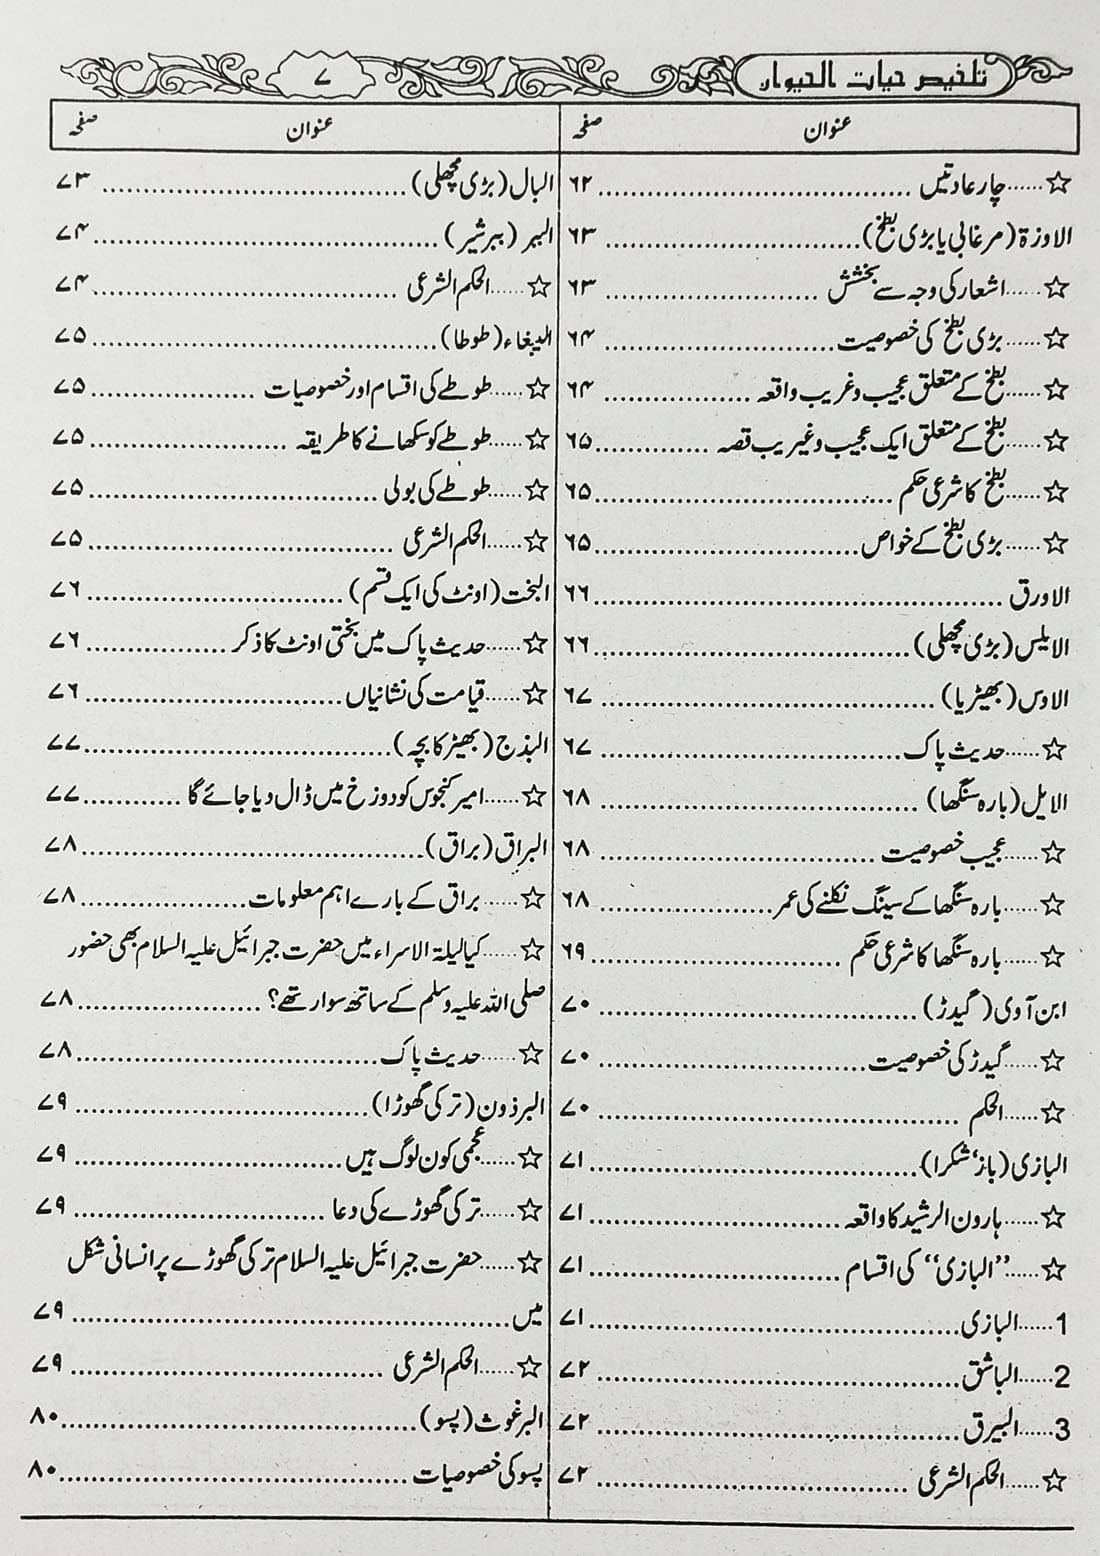 تلخیص حیات الحیوان
۷
عنوان صفحہ
☆......چار عادتیں ...... ۶۲
الاوزۃ (مرغابی یا بڑی بطخ) ...... ۶۳
☆......اشعار کی وجہ سے بخشش ...... ۶۳
☆......بڑی بطخ کی خصوصیت ...... ۶۴
☆......بطخ کے متعلق عجیب و غریب واقعہ ...... ۶۴
☆......بطخ کے متعلق ایک عجیب و غیریب قصہ ...... ۶۵
☆......بطخ کا شرعی حکم ...... ۶۵
☆......بڑی بطخ کے خواص ...... ۶۵
الاورق ...... ۶۶
الایلس (بڑی مچھلی) ...... ۶۶
الاوس (بھیڑیا) ...... ۶۷
☆......حدیث پاک ...... ۶۷
الایل (بارہ سنگھا) ...... ۶۸
☆......عجیب خصوصیت ...... ۶۸
☆......بارہ سنگھا کے سینگ نکلنے کی عمر ...... ۶۸
☆......بارہ سنگھا کا شرعی حکم ...... ۶۹
ابن آوی (گیدڑ) ...... ۷۰
☆......گیدڑ کی خصوصیت ...... ۷۰
☆......الحکم ...... ۷۰
البازی (باز، شکرا) ...... ۷۱
☆......ہارون الرشید کا واقعہ ...... ۷۱
☆......"البازی" کی اقسام ...... ۷۱
1......البازی ...... ۷۱
2......الباشق ...... ۷۲
3......البیرق ...... ۷۲
☆......الحکم الشرعی ...... ۷۲
عنوان صفحہ
البال (بڑی مچھلی) ...... ۷۳
الببر (ببر شیر) ...... ۷۴
☆......الحکم الشرعی ...... ۷۴
الببغاء (طوطا) ...... ۷۵
☆......طوطے کی اقسام اور خصوصیات ...... ۷۵
☆......طوطے کو سکھانے کا طریقہ ...... ۷۵
☆......طوطے کی بولی ...... ۷۵
☆......الحکم الشرعی ...... ۷۵
البخت (اونٹ کی ایک قسم) ...... ۷۶
☆......حدیث پاک میں بختی اونٹ کا ذکر ...... ۷۶
☆......قیامت کی نشانیاں ...... ۷۶
البذج (بھیڑ کا بچہ) ...... ۷۷
☆......امیر کنجوس کو دوزخ میں ڈال دیا جائے گا ...... ۷۷
البراق (براق) ...... ۷۸
☆......براق کے بارے اہم معلومات ...... ۷۸
☆......کیا لیلۃ الاسراء میں حضرت جبرائیل علیہ السلام بھی حضور
صلی اللہ علیہ وسلم کے ساتھ سوار تھے؟ ...... ۷۸
☆......حدیث پاک ...... ۷۸
البرذون (ترکی گھوڑا) ...... ۷۹
☆......عجمی کون لوگ ہیں ...... ۷۹
☆......ترکی گھوڑے کی دعا ...... ۷۹
☆......حضرت جبرائیل علیہ السلام ترکی گھوڑے پر انسانی شکل
میں ...... ۷۹
☆......الحکم الشرعی ...... ۷۹
البرغوث (پسو) ...... ۸۰
پسو کی خصوصیات ...... ۸۰